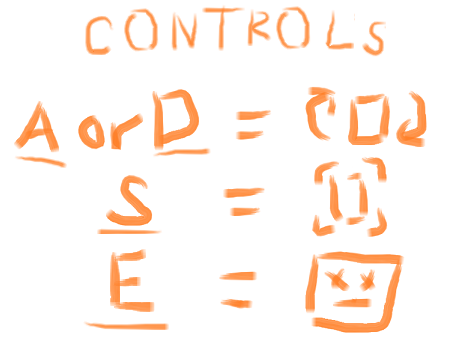 CONTROLS
A or D =
S =
E =